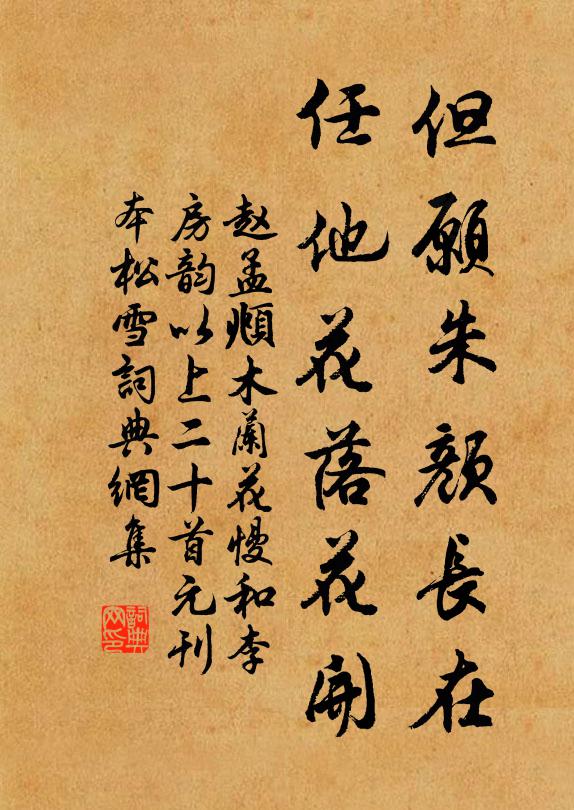 但願朱顏長在
任他花落花開
赵孟頫木蘭花慢和李
房韵以上二十首元刊
本松雪詞典網集
詞典
网印